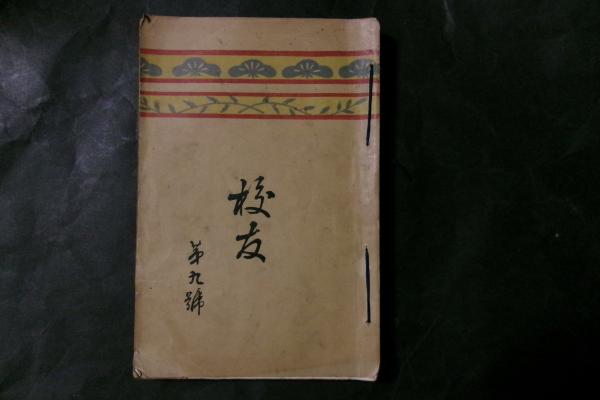 校友
第九號